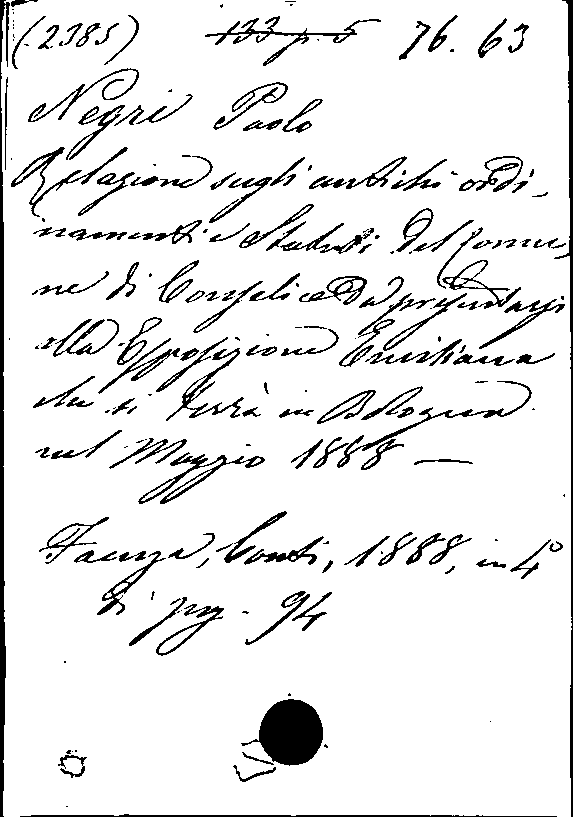 (2385) 133 p. 5 76. 63
Negri Paolo
Relazione sugli antichi ordi-
namenti e Statuti del Comu-
ne di Conselice da presentarsi
alla Esposizione Emiliana
che si terrà in Bologna
nel Maggio 1888 —
Faenza, Conti, 1888, in 4°
di pag. 94